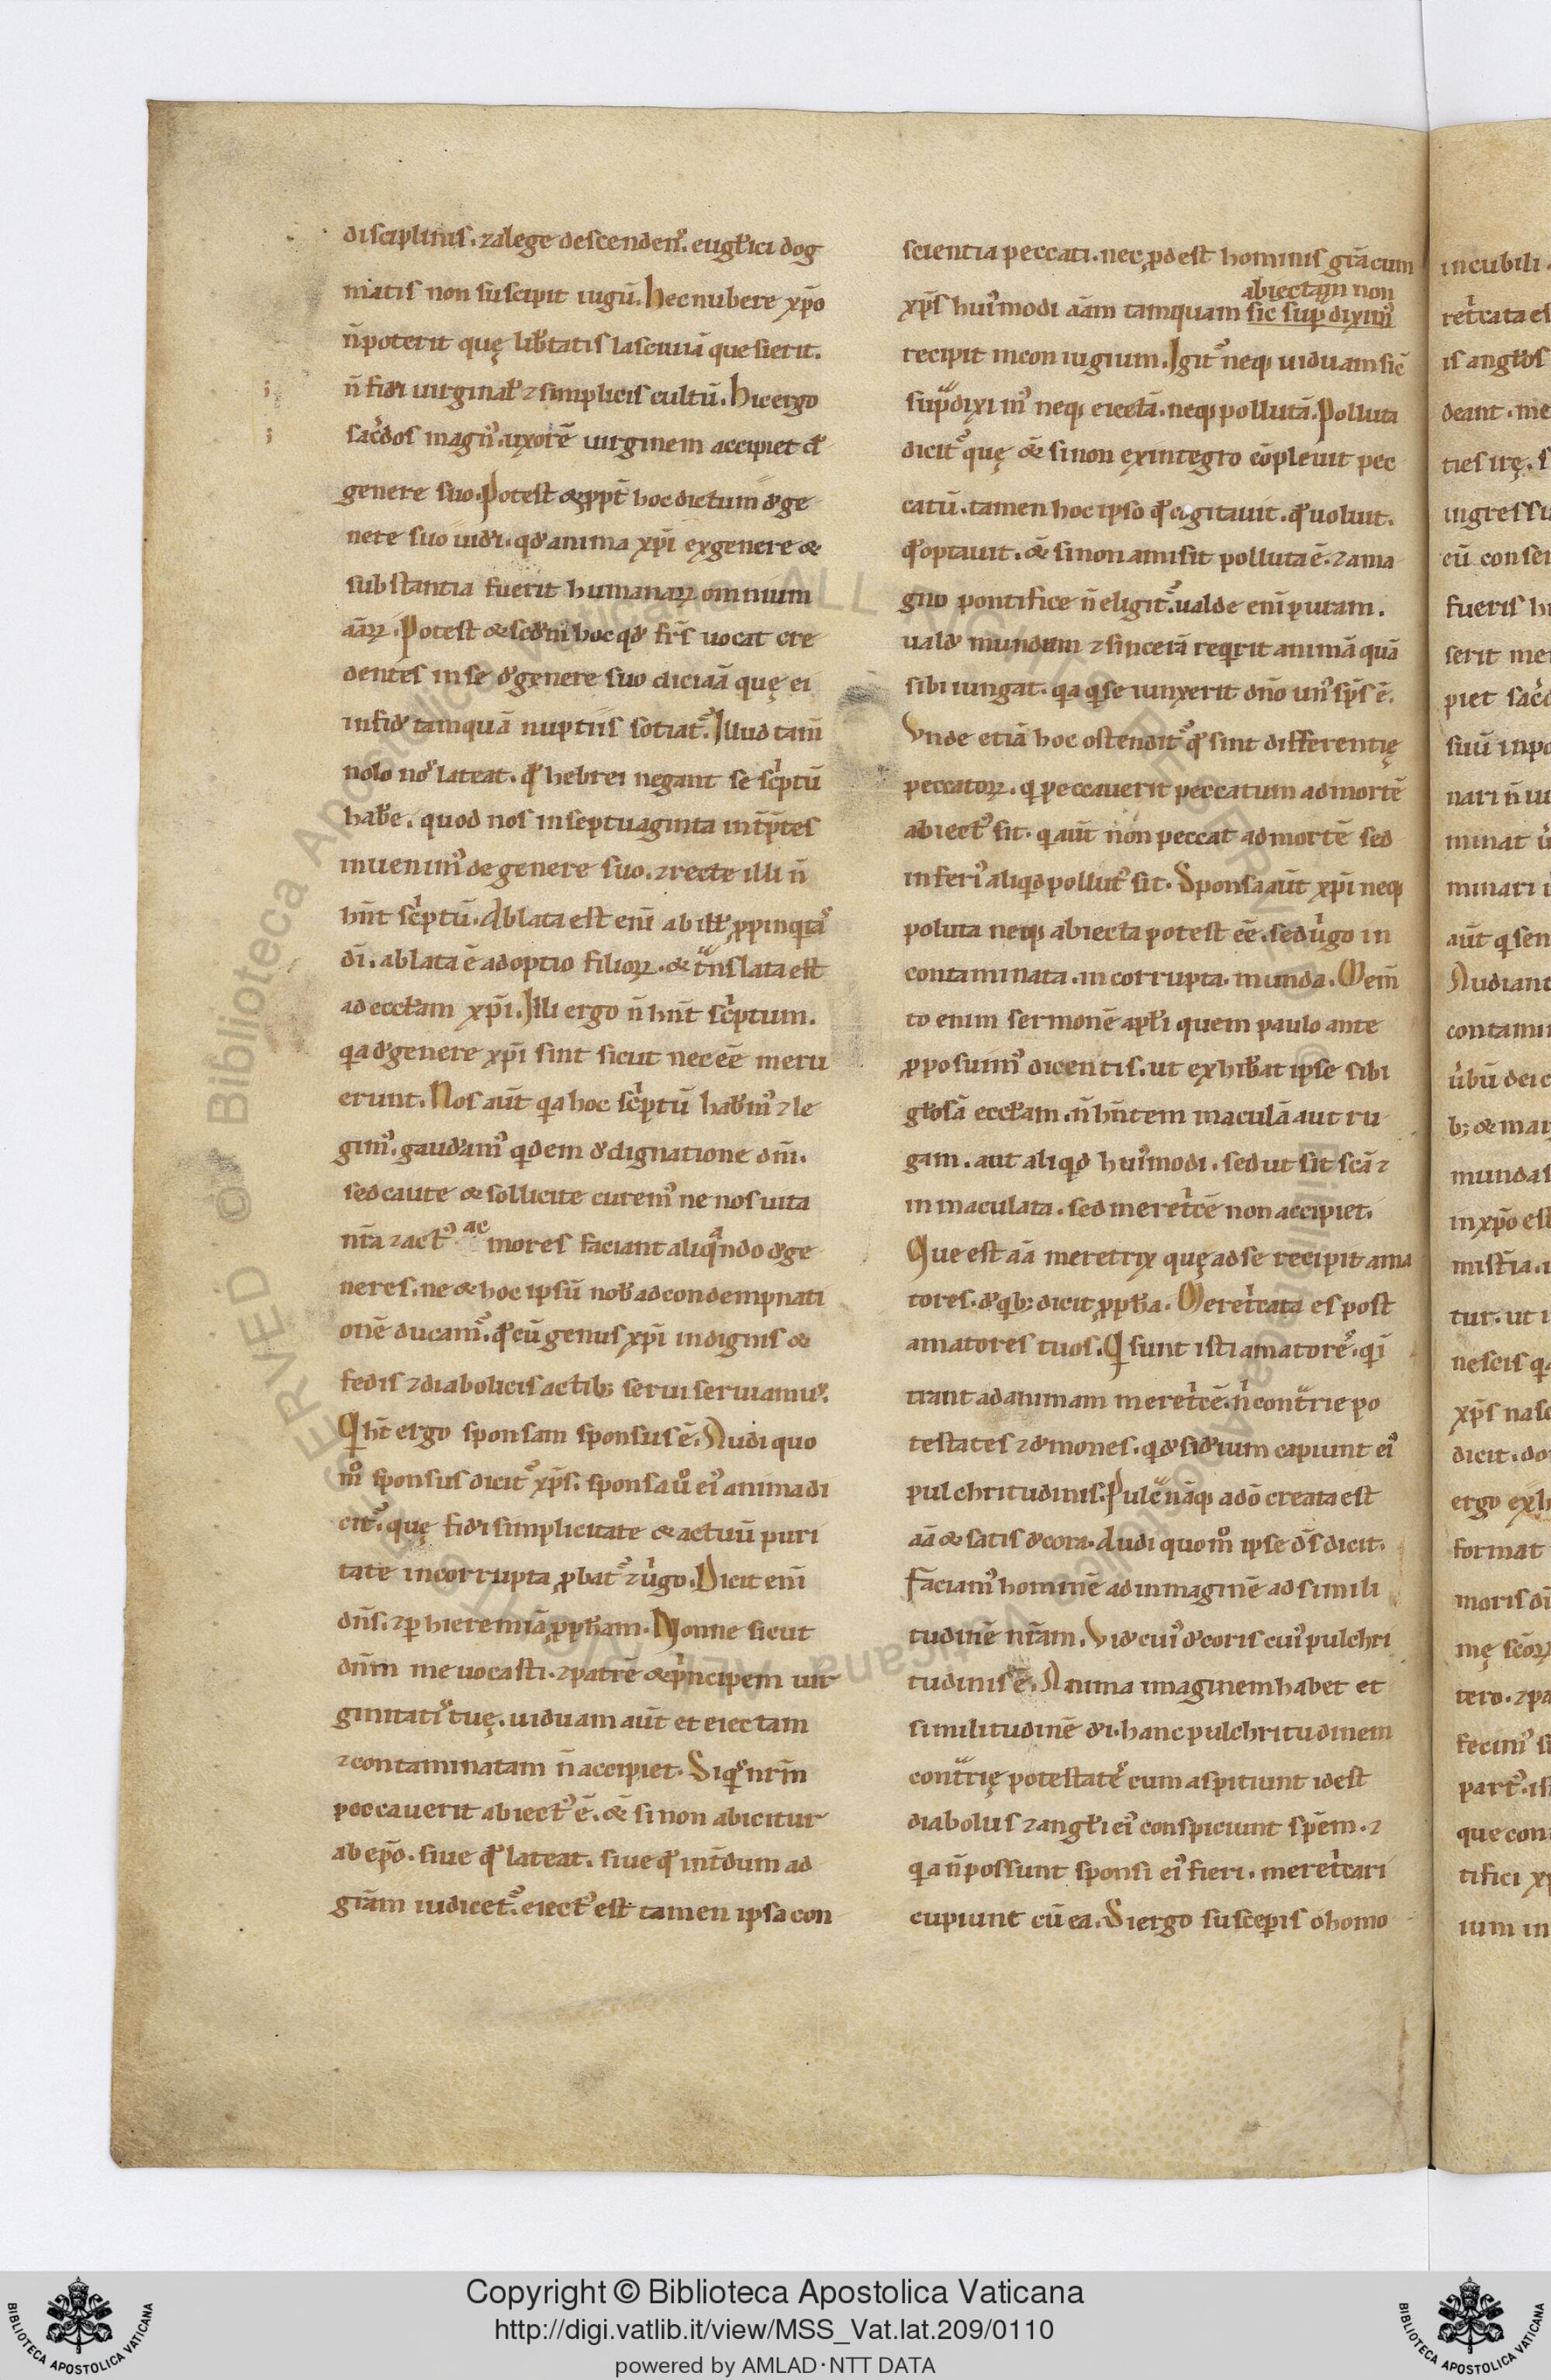 disciplinis. ⁊ a lege descendens. euglici dog
matis non suscipit iugū. hec nubere xp̄o
n̄ poterit quę lib̄tatis lasciuiā quesierit.
n̄ fidei uirginal̓ ⁊ simplicis cultū. hic ergo
sac̓dos magn᾽. uxorē uirginem accipiet d᾽
genere suo. Potest & ꝓpt̄ hoc dictum d᾽ ge
nere suo uid᾽i. qd᾽ anima xp̄i ex genere &
substantia fuerit humanaꝝ omnium
aāꝝ. Potest & scd̄m hoc qd᾽ fr̄s uocat cre
dentes in se d᾽ genere suo dici aā quę ei
in fid᾽ tamquā nuptiis sotiat᾽. Illud tam̄
nolo nos lateat. qd᾽ hebrei negant se sc̓ptū
hab̄e. quod nos in septuaginta int̄p̄tes
inuenim᾽ de genere suo. ⁊ recte illi n̄
hn̄t sc̓ptū. Ablata est eni᾽ ab ill̓ ꝓpinq̓tas
dī. ablata ē adoptio filioꝝ. & tⁿslata est
ad eccl̄am xp̄i. Illi ergo n̄ hn̄t sc̓ptum.
q̓a d᾽ genere xp̄i sint sicut nec eē meru
erunt. Nos aūt q̓a hoc sc̓ptū habem᾽ ⁊ le
gim᾽. gaudeam᾽ q̓dem d᾽ dignatione dn̄i.
sed caute & sollicite curem᾽ ne nos uita
nr̄a ⁊ act᾽ ac mores faciant aliqᵃndo d᾽ge
neres. ne & hoc ipsū nob̓ ad condempnati
onē ducam᾽. qd᾽ cū genus xp̄i indignis &
fedis ⁊ diabolicis actib; serui seruiamus.
Q̓ ht̄ ergo sponsam sponsus ē. Audi quo
m̊ sponsus dicit᾽ xp̄s. sponsa ů ei᾽ anima di
cit᾽. quę fidei simplicitate & actuū puri
tate incorrupta ꝓbat᾽ ⁊ ů̓go. Dicit eni᾽
dn̄s. ⁊ ꝑ hieremiā ꝓph̄am. Nonne sicut
dn̄m me uocasti. ⁊ patrē & p̓ncipem uir
ginitatis tuę. uiduam aūt et eiectam
⁊ contaminatam n̄ accipiet. Si q̓s nr̄m
peccauerit abiect᾽ ē. & si non abicitur
ab ep̄o. siue qd᾽ lateat. siue qd᾽ int̄dum ad
gr̄am iudicet᾽. eiect᾽ est tamen ipsa con
scientia peccati. nec ꝓdest hominis gr̄a cum
abiectam non
xp̄s hui᾽modi aām tamquam sic sup̄ dixim᾽
recipit in coniugium. Igit᾽ neq; uiduam sic̄
supᵃdixim᾽ neq; eiectā. neq; pollutā. Polluta
dicit᾽ quę & si non ex integro cōpleuit pec
catū. tamen hoc ipso qd᾽ cogitauit. qd᾽ uoluit.
qd᾽ optauit. & si non amisit polluta ē. ⁊ a ma
gno pontifice n̄ eligit᾽. ualde eni᾽ puram.
uald᾽ mundam ⁊ sincerā req̓rit animā quā
sibi iungat. q̓a q̓ se iunxerit dn̄o un᾽ sp̄s ē.
Vnde etiā hoc ostendit᾽ qd᾽ sint differentię
peccatoꝝ. q̓ peccauerit peccatum ad mortē
abiect᾽ sit. q̓ aūt non peccat ad mortē sed
inferi᾽ aliq̓d pollut᾽ sit. Sponsa aūt xp̄i neq;
poluta neq; abiecta potest eē. sed ů̓go in
contaminata. incorrupta. munda. Mem̄
to enim sermonē apl̄i quem paulo ante
ꝓposuim᾽ dicentis. ut exhib̓eat ipse sibi
gl̄osā eccl̄am. n̄ hn̄tem maculā aut ru
gam. aut aliq̓d hui᾽modi. sed ut sit sc̄a ⁊
inmaculata. sed meret̓cē non accipiet.
Que est aā meretrix quę ad se recipit ama
tores. d᾽ q̓b; dicit ꝓph̄a. Meret̓cata es post
amatores tuos. Q̓ sunt isti amatores. q̓ i
trant ad animam meret̓cē. n̓ contᵃrie po
testates ⁊ demones. q̓ desid᾽ium capiunt ei᾽
pulchritudinis. Pulcᵃ nāq; a dō creata est
aā & satis d᾽cora. Audi quom̊ ipse ds̄ dicit.
Faciam᾽ hominē ad imaginē ad simili
tudinē nr̄am. Vide cui᾽ d᾽coris cui᾽ pulchri
tudinis ē. Anima imaginem habet et
similitudinē d̄i. hanc pulchritudinem
contᵃrię potestates cum aspitiunt id est
diabolus ⁊ angl̄i ei᾽ conspiciunt sp̄em. ⁊
q̓a n̄ possunt sponsi ei᾽ fieri. meret̓cari
cupiunt cū ea. Si ergo susceperis o homo
Copyright © Biblioteca Apostolica Vaticana
http://digi.vatlib.it/view/MSS_Vat.lat.209/0110
powered by AMLAD·NTT DATA